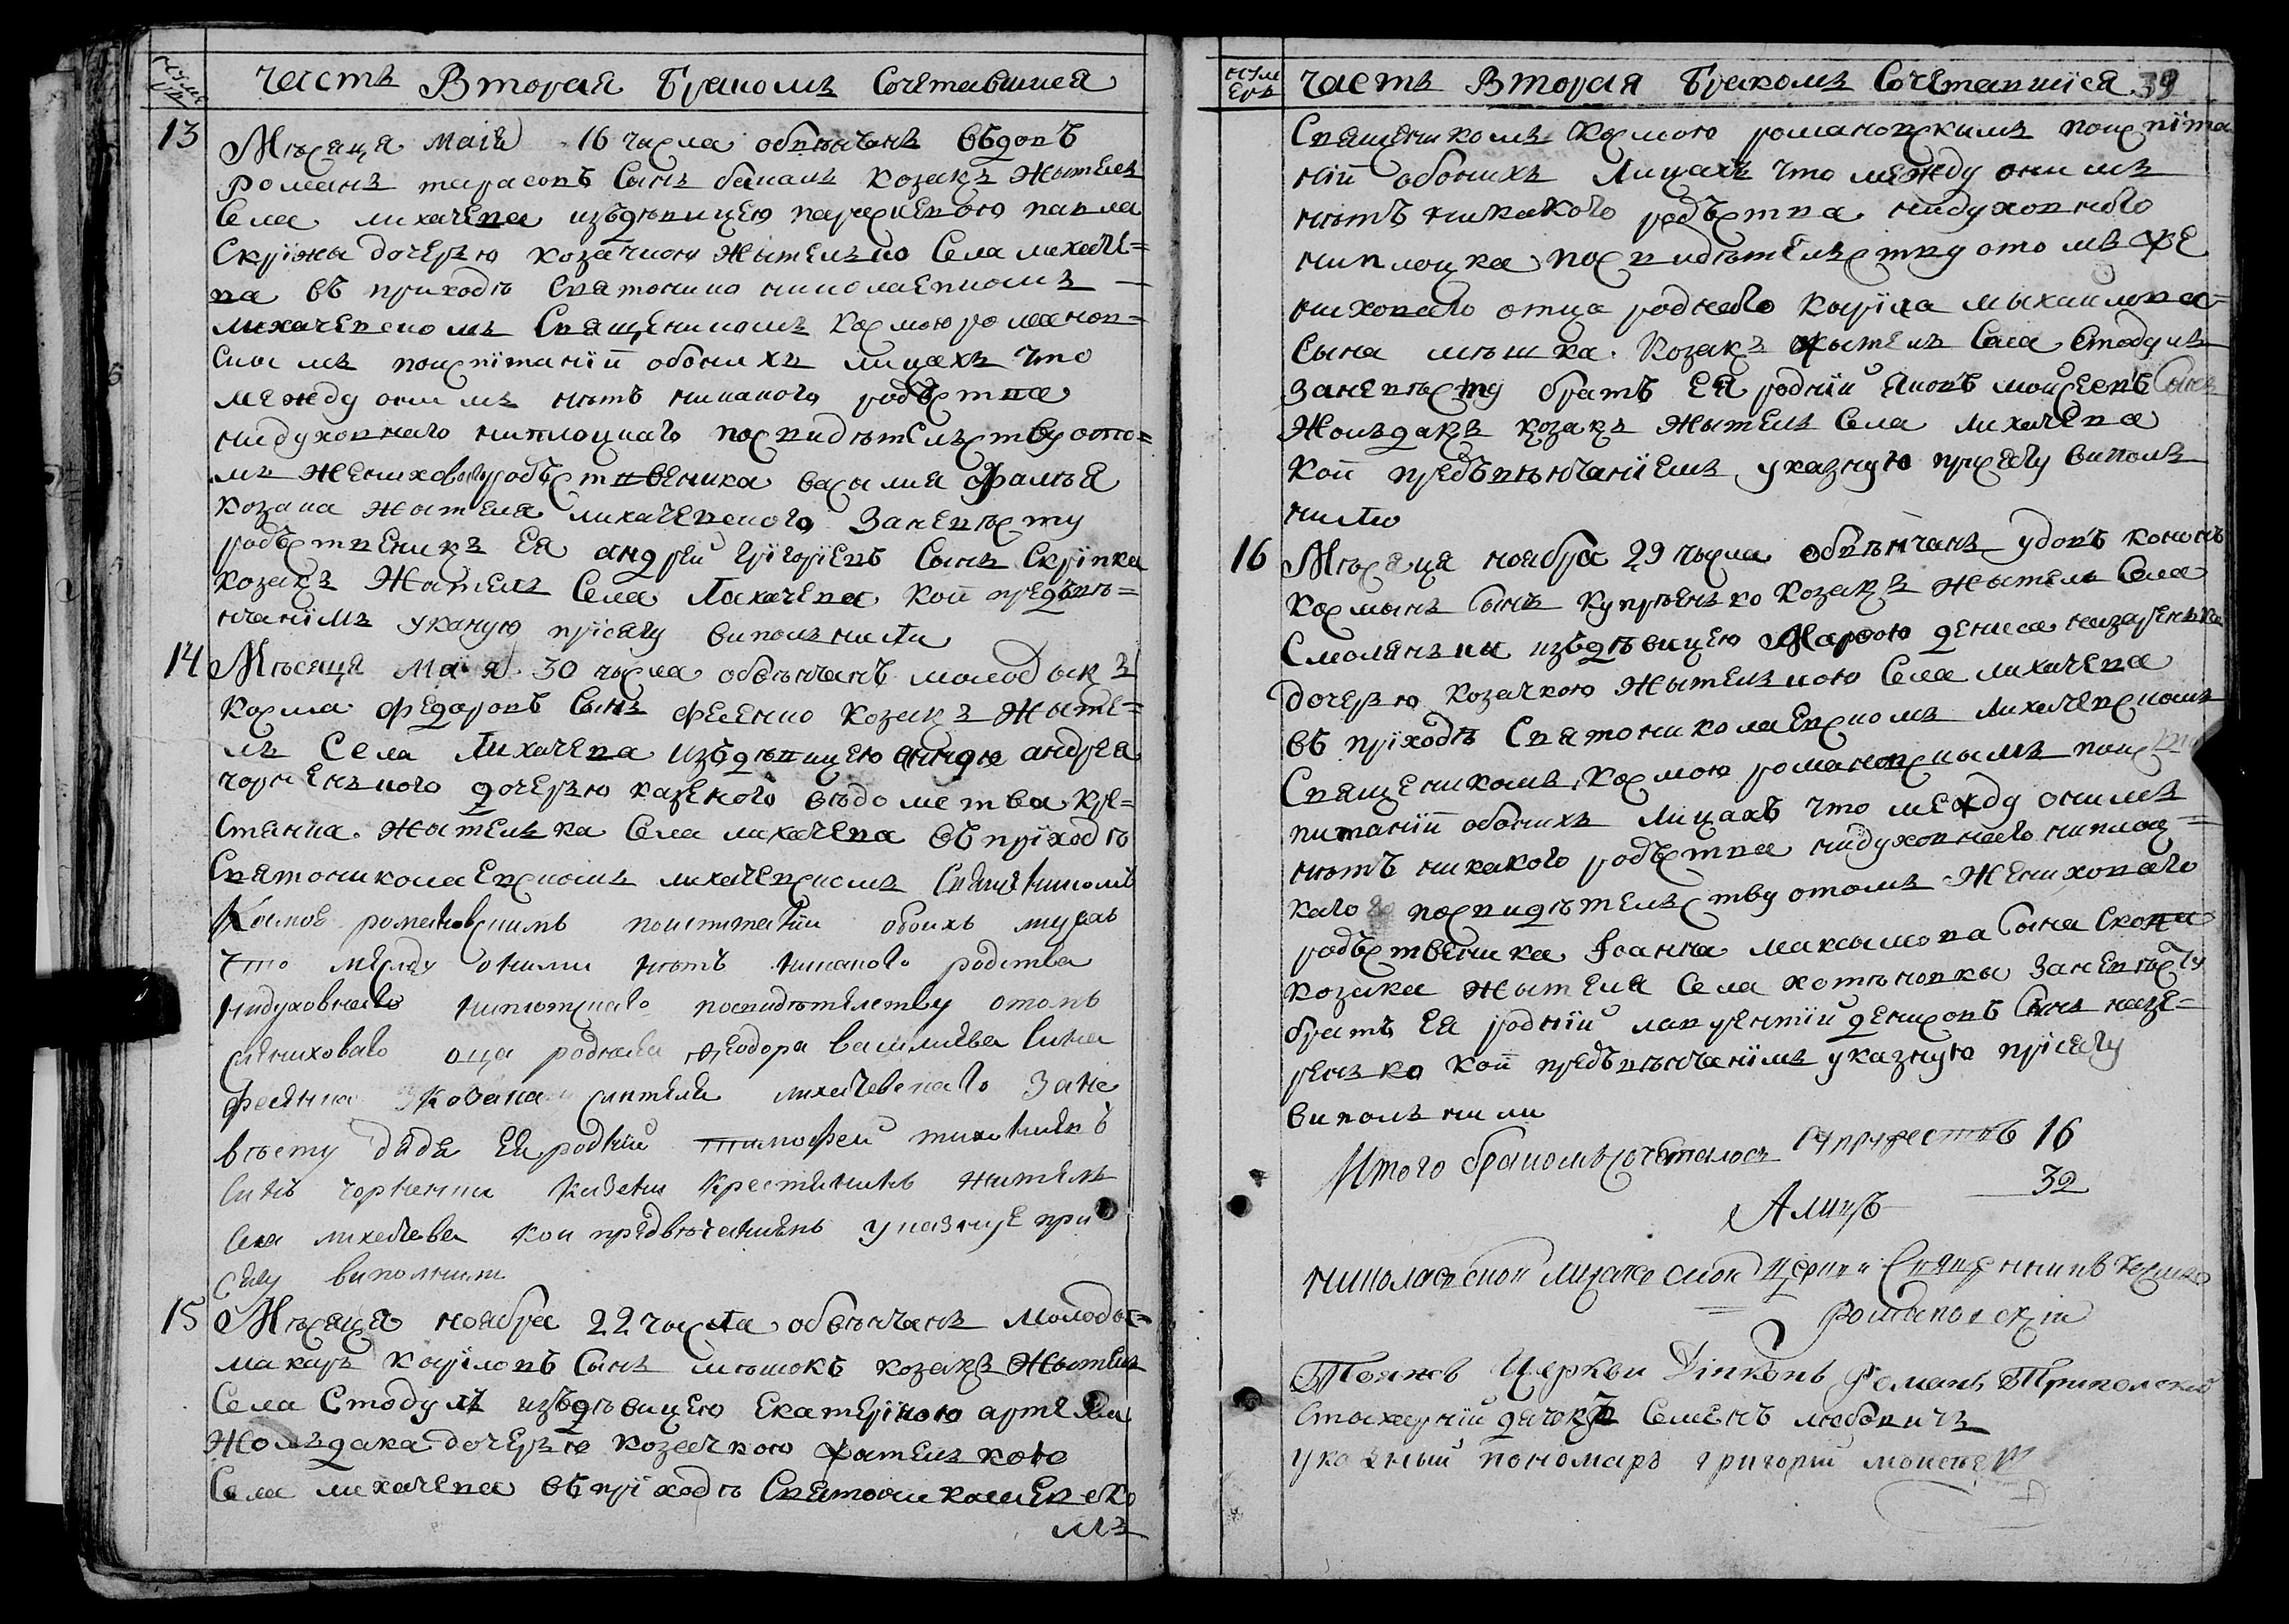 нуме
ръ
часть Вторая Бракомъ Сочетавшися
13
Мѣсяца маія 16 числа обвѣнчанъ вѣдовъ
романъ тарасовъ Сынъ козакъ жытель
Села лихачева изъдѣвицею павла
Скрїпки дочерью козачкою жытелькою Села лихаче=
ва въ приходѣ Святонико николаевскомъ
лихачевскомъ Священикомъ космою романов=
скимъ поиспїтанїи обоихъ лицахъ что
между оними нѣтъ никакого родъства
нидуховнаго ниплоцкаго посвидѣтельству ото=
мъ жениховаго родъственика васылия
козака жытеля лихачевского заневѣсту
родъственикъ Ея андрѣй григорїевъ Сынъ Скрїпка
козакъ Жытель Села Лихачева кои предъвѣ=
нчанїмъ указную прїсягу виполънили
14
Мѣсяца Мая 30 числа обвѣнчанъ молодыкъ
Косма федоровъ Сынъ фесенко козакъ Жыте=
ль Села Лихачева изъдѣвицею андрея
чорненъкого дочерью казеного вѣдомства кре=
стянка Жытелька Села лихачева въ прїходѣ
Святониколаевскомъ лихачевскомъ Священикомъ
Космою романовскимъ поиспитанїи обоихъ лицахъ
что между оними нѣтъ никакого родства
нидуховнаго ниплотскаго посвидѣтелству отомъ
жениховаго оца роднаго феодора василиева сина
фесенка козака жителя лихачевскаго зане
вѣсту дядя Ея роднїи тимофеи
синъ чорненки казени крестянинъ житель
Села лихачева кои предвѣнчаниемъ указную при
сягу виполнили
15
Мѣсяца ноября 22 числа обвѣнчанъ Молодык
макаръ кирїловъ Сынъ мѣшокъ козакъ Жытель
Села Стодулъ изъдѣвицею Екатерїною артема
Жолъдака дочерью козачкою жытелькою
Села лихачева въ прїходѣ Святониколаевско
мъ
нуме
еръ
часть Вторая Бракомъ Сочетавшїся 39
Священикомъ Космою романовскимъ поиспїта
нїи обоихъ Лицахъ что между онимъ
нѣтъ никакого родъства нидуховного
ниплоцка посвидѣтельству отомъ же
ниховаго отца роднаго кирїла мыхаилова
Сына мѣшка козакъ жытель Села Стодулъ
заневѣсту братъ Ея роднїи Сынъ
Жолъдакъ козакъ жытель Села лихачева
кои предъвѣнчанїемъ указную присягу виполъ
нили
16
Мѣсяца ноября 29 числа обвѣнчанъ удовъ кононъ
Космынъ Сынъ купрѣенько Козакъ жытель Села
Смолянъки изъдѣвицею Марфою дениса назаренька
дочерью козачкою жытелькою Села лихачева
въ прїходѣ Святониколаевскомъ Лихачевскомъ
Священикомъ космою романовскымъ поис
питанїи обоихъ лицахъ что между онимъ
нѣтъ никакого родъства нидуховнаго ниплоц=
каго посвидѣтельству отомъ Жениховаго
родъственика Іоанна максымова Сына
козака жытеля Села хотѣновки заневѣсту
братъ Ея роднїи лаврентїи денисовъ Сынъ наза=
ренько кои предъвѣнчанїмъ указную прїсягу
виполънили
Итого бракомъ сочеталось Супружествъ 16
32
Аминь
николаевской лихачевской церкви Священникъ Косма
романовскїи
Тояжъ Церкви Діяконъ Романъ Триполский
стыхарнїи дячокъ Семенъ любовичъ
указный пономаръ григорїи